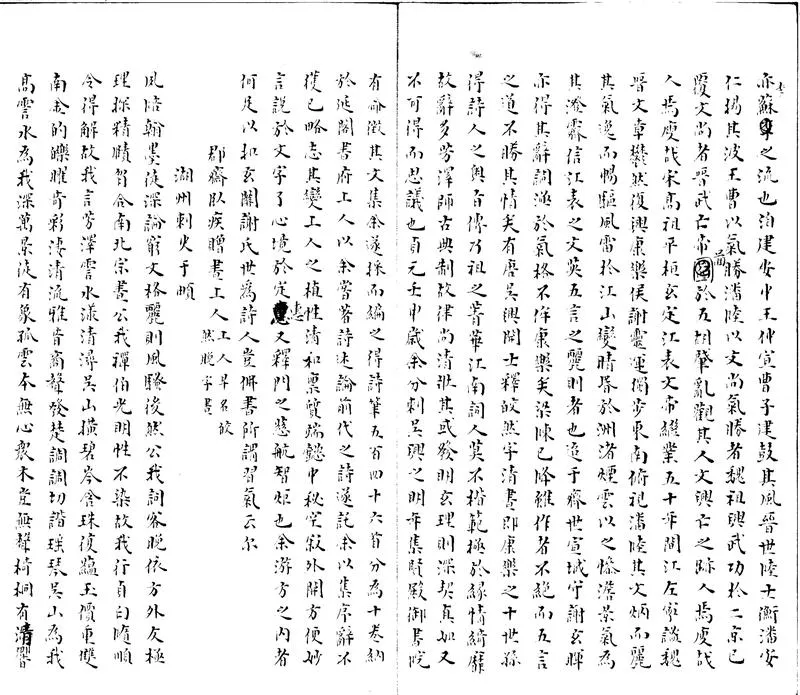 亦蘇李之流也洎建安中王仲宣曹子建鼓其風晉世陸士衡潘安
仁揚其波王曹以氣勝潘陸以文尚氣勝者魏祖興武功於二京已
覆文尚者晉武亡帝圖於五胡肇亂觀其人文興亡之跡人焉廋哉
人焉廋哉宋高祖平桓玄定江表文帝繼業五十年間江左寧謐魏
晉文章鬱然復興康樂侯謝靈運獨步東南俯視潘陸其文炳而麗
其氣逸而暢驅風雷於江山變晴昏於洲渚煙雲以之慘澹景氣為
其澄霽信江表之文英五言之麗則者也迨于齊世宣城守謝玄暉
亦得其辭調逸於氣格不侔康樂矣梁陳已降雖作者不絕而五言
之道不勝其情矣有唐吳興開士釋皎然字清晝即康樂之十世孫
得詩人之奧旨傳乃祖之菁華江南詞人莫不楷範極於緣情綺靡
故辭多芳澤師古興制故律尚清壯其或發明玄理則深契真如又
不可得而思議也貞元壬申歲余分刺吳興之明年集賢殿御書院
有命徵其文集余遂採而編之得詩筆五百四十六首分為十卷納
於延閣書府上人以余嘗著詩述論前代之詩遂託余以集序辭不
獲已略志其變上人之植性清和稟質端懿中秘空寂外開方便妙
言說於文字了心境於定惠又釋門之慈航智炬也余游方之內者
何足以扣玄關謝氏世為詩人豈佛書所謂習氣云尔
郡齋臥疾贈晝上人上人早名皎然晚字晝
湖州刺史于頔
風陵翰墨徒深論窮文格麗則風騷後然公我詞客晚依方外友極
理探精賾智合南北宗晝公我禪伯尤明性不染故我行貞白隨順
令得解故我言芳澤雲水漾清潯吳山橫碧岑含珠復蘊玉價重雙
南金的皪曜奇彩淒清流雅音商聲發楚調調切諧瑤琴吳山為我
高雲水為我深萬景徒有象孤雲本無心衆木豈無聲椅桐有清響